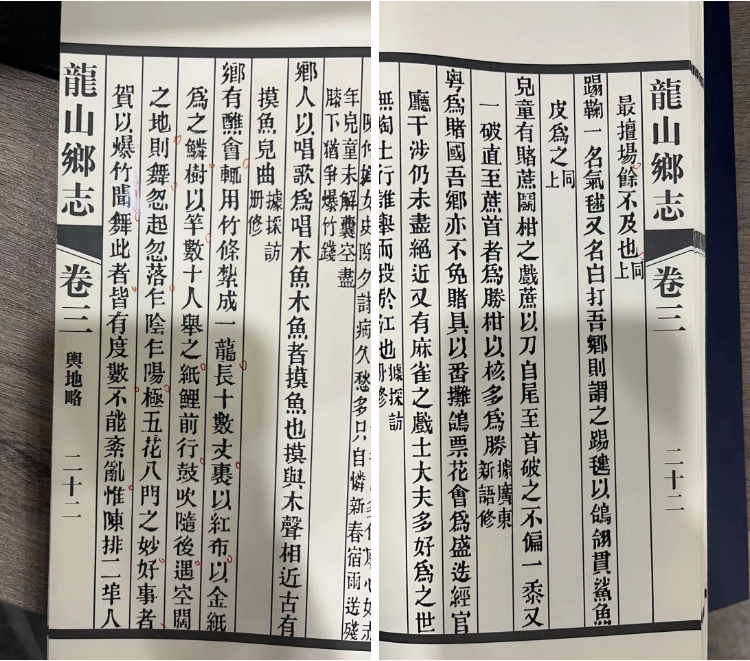 女史除夕詩病久愁多只自憐新春宿雨送殘
年兒童未解囊空盡
膝下猶爭爆竹錢
鄉人以唱歌爲唱木魚木魚者摸魚也摸與木聲相近古有
摸魚兒曲據採訪冊修
鄉有醮會輒用竹條紮成一龍長十數丈裹以紅布以金紙
爲之鱗樹以竿數十人舉之紙鯉前行鼓吹隨後遇空闊
之地則舞忽起忽落乍陰乍陽極五花八門之妙好事者
賀以爆竹聞舞此者皆有度數不能紊亂惟陳排二埠人
龍山鄉志 卷三 輿地略 二十二
龍山鄉志 卷三 二十二
最擅場餘不及也同上
踢鞠一名氣毬又名白打吾鄉則謂之踢毽以鴿翎貫鯊魚
皮爲之同上
兒童有賭蔗鬭柑之戲蔗以刀自尾至首破之不偏一黍又
一破直至蔗首者爲勝柑以核多爲勝據廣東新語修
粤爲賭國吾鄉亦不免賭具以番攤鴿票花會爲盛迭經官
廳干涉仍未盡絕近又有麻雀之戲士大夫多好爲之世
無陶士行誰舉而投於江也據採訪冊修